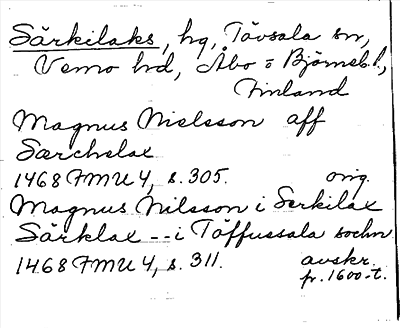 Särkilaks, hg, Tövsala sn,
Vemo hd, Åbo o Björneb. l.,
Finland
Magnus Nielsson aff
Særchelax
1468 FMU 4, s. 305. orig.
Magnus Nilsson i Serkilax
Särklax -- i Töffussala sochn
1468 FMU 4, s. 311. avskr.
fr. 1600-t.